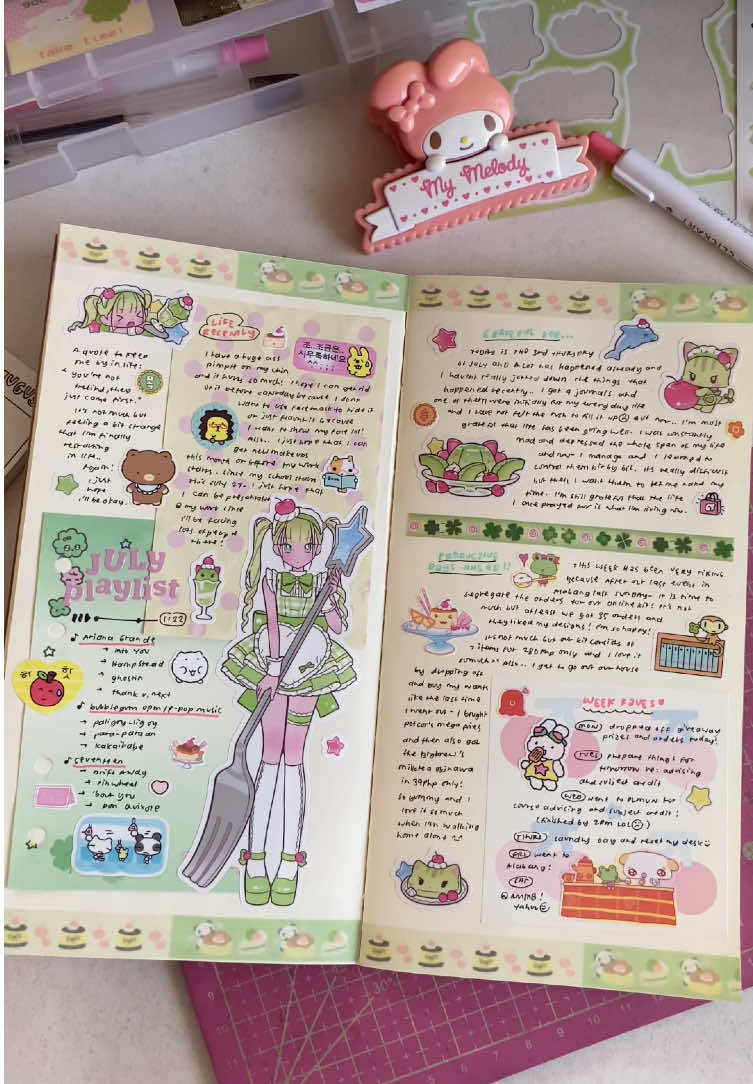 take time!
My Melody
CLICKART
A quote to keep
me by in life:
" you're not
behind, they
just came first."
It's not much but
feeling a bit strange
that I'm finally
recovering
in life..
Again!
I just
hope
i'll be okay.
LIFE
RECENTLY
조..조금은..
시무룩하네요
I have a huge ass
pimple on my chin
and it hurts so much! I hope I can get rid
of it before
because I don't
want to use facemask to hide it
or just flaunt it because
I want to show my face lol!
also.. I just hope that I can
get new makeup
this month or before my work
starts.. since my school starts
this July 27- I just hope that
I can be presentable
@ my work since
i'll be facing
lots of people
there!
JULY
playlist
1:22
♪ Ariana Grande
→ into you
→ Hampstead
→ ghostin
→ thank u, next
♪ bubblegum opm/p-pop music
→ paligoy-ligoy
→ para-paraan
→ kakaibabe
♪ Seventeen
→ drift away
→ pinwheel
→ 'bout you
→ Don Quixote
GRATEFUL FOR...
TODAY IS THE 3rd Thursday
of July and a lot has happened already and
I haven't really jotted down the things that
happened recently.. I got 2 journals and
one of them were initially for my everyday life
and I have not felt the rush to fill it up but now.. I'm most
grateful that life has been going well. I was constantly
mad and depressed the whole span of my life
and now I manage and I learned to
control them bit by bit. It's really difficult
but then I want them to
my
time. I'm still grateful that the life
I once prayed for is what I'm living now.
PRODUCTIVE
DAYS AHEAD!!
This week has been very tiring
because after our last event in
Alabang last Sunday- it is time to
segregate the orders for our online kit! It's not
much but at least we got 35 orders and
they liked my designs! I'm so happy!
It's not much but our kit consists of
7 items for 280php only and I love it
so much! Also.. I get to go out our house
by dropping off
and buy my wants
like the last time
I went out- I bought
Potato's mega fries
and then also got
the BigBrew's
milktea okinawa
in 39php only!
so yummy and I
love it so much
when I'm walking
home alone
WEEK FAVES
MON dropped off giveaway
prizes and orders today!
TUES prepare things for
tomorrow re: advising
and subject credit
WED went to PLMUN for
course advising and subject credit!
(finished by 2pm LOL)
THURS laundry day and reset my desk
FRI went to
Alabang!
SAT
@ AMINB!
yahoo